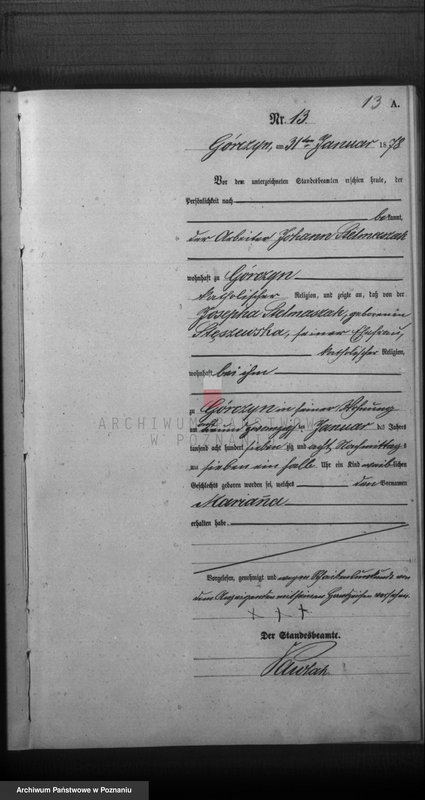 13 A.
Nr. 13.
Górczyn, am 31ten Januar 1878
Vor dem unterzeichneten Standesbeamten erschien heute, der
Persönlichkeit nach
bekannt,
der Arbeiter Johann Stelmaszak
wohnhaft zu Górczyn
katholischer Religion, und zeigte an, daß von der
Josepha Stelmaszak, geborenen
Stęszewska, seiner Ehefrau,
katholischer Religion,
wohnhaft bei ihm
zu Górczyn in seiner Wohnung
am zwanzigsten Januar des Jahres
tausend acht hundert siebenzig und acht Nachmittags
um sieben ein halb Uhr ein Kind weiblichen
Geschlechts geboren worden sei, welches den Vornamen
Marianna
erhalten habe.
Vorgelesen, genehmigt und wegen Schreibensunkunde von
dem Anzeigenden mit seinem Handzeichen versehen.
+ + +
Der Standesbeamte.
ARCHIWUM PAŃSTWOWE
W POZNANIU
Archiwum Państwowe w Poznaniu